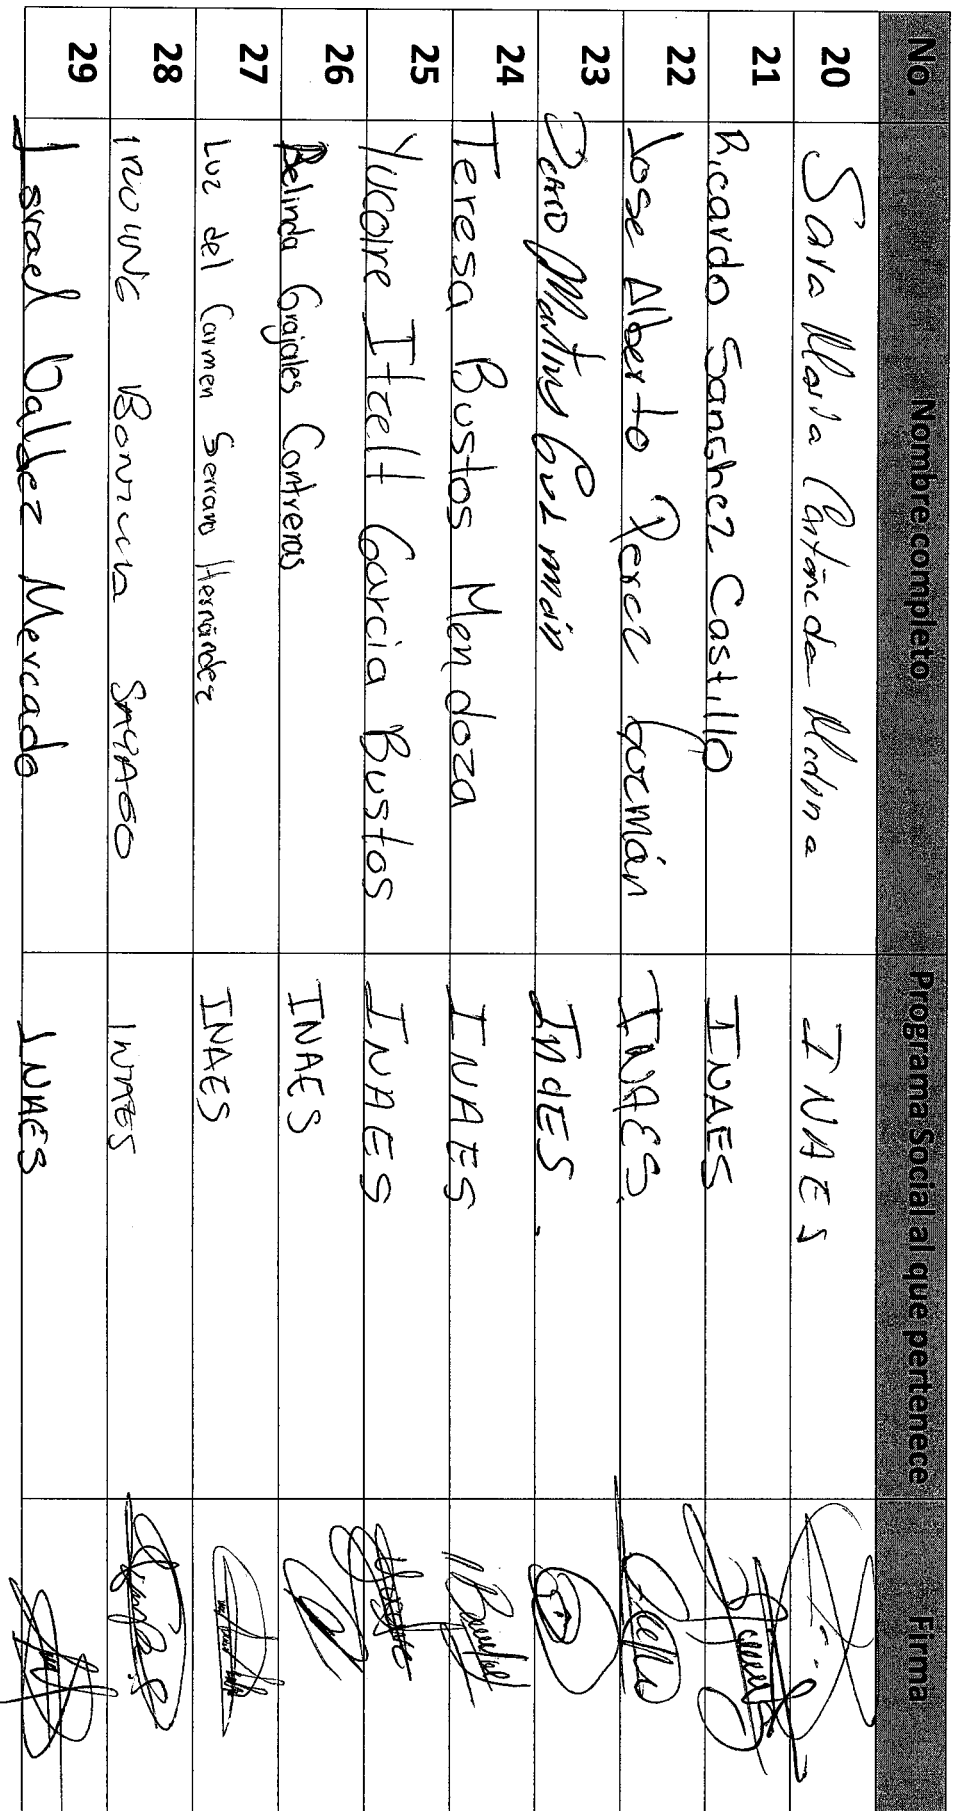 No. Nombre completo Programa Social al que pertenece Firma
20 Sara María Castañeda Medina INAES
21 Ricardo Sanchez Castillo INAES
22 Jose Alberto Perez Guzmán INAES.
23 Martinez Guzmán INAES.
24 Teresa Bustos Mendoza INAES
25 Yucaire Itzelt Garcia Bustos INAES
26 Belinda Grajales Contreras INAES
27 Luz del Carmen Serrano Hernández INAES
28 INAES
29 Israel Valdez Mercado INAES